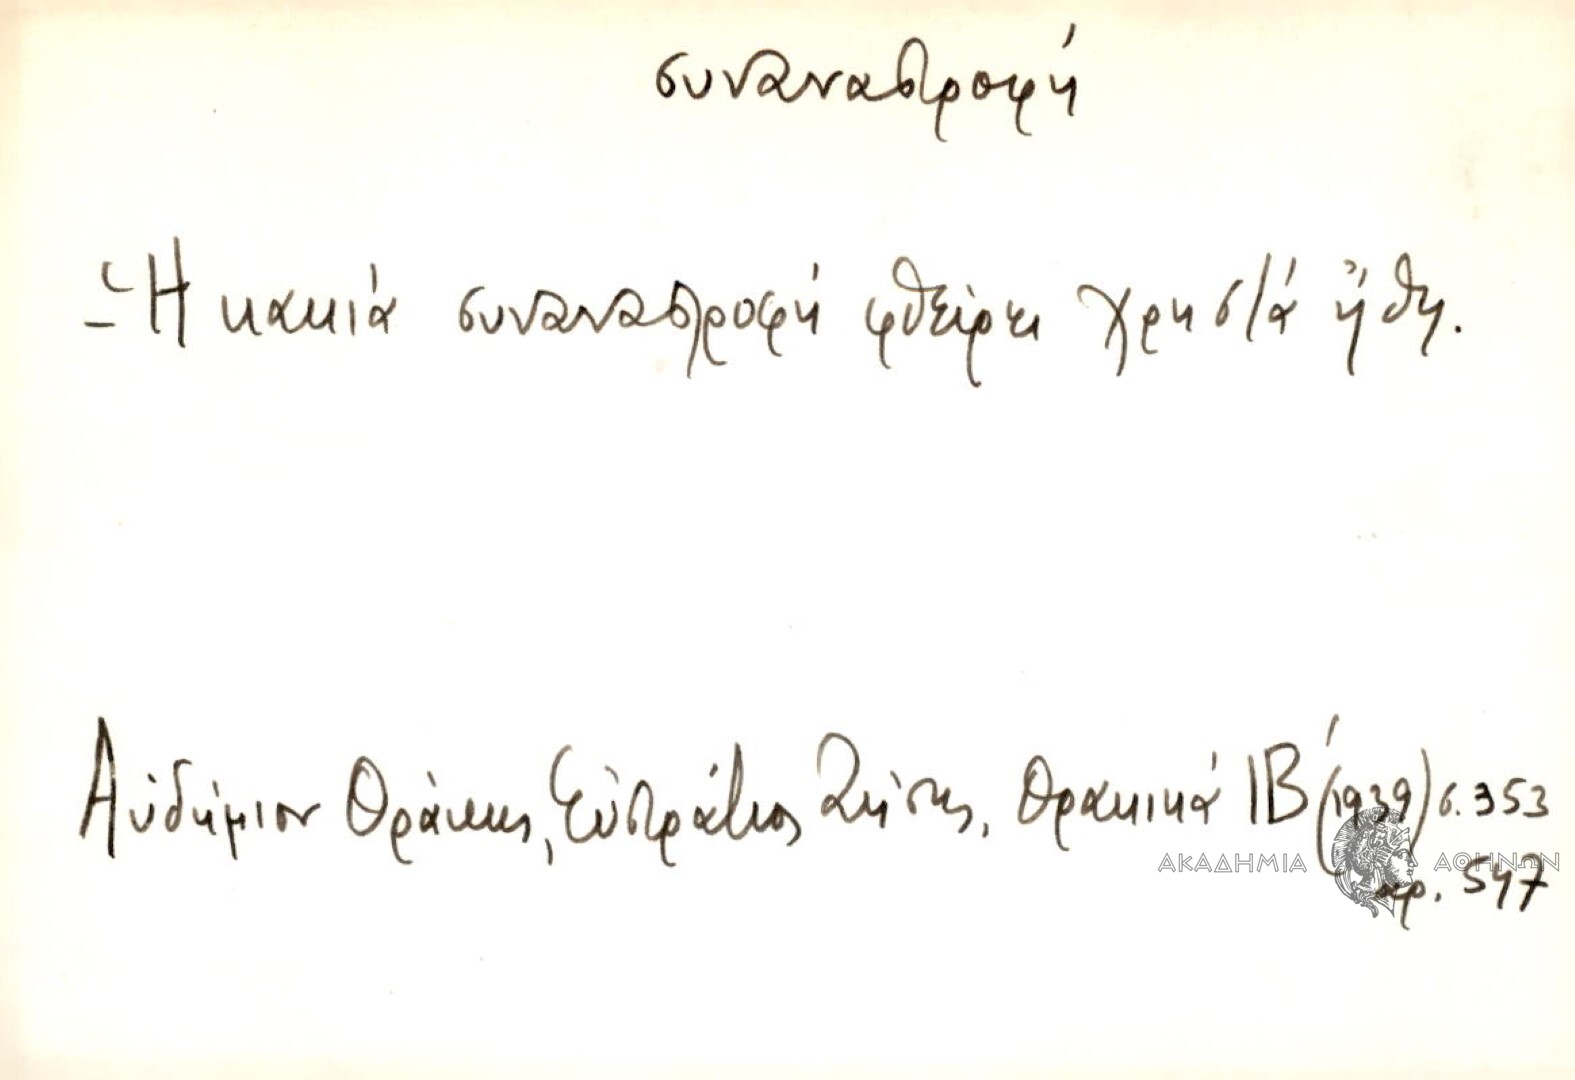 συναναστροφή
– Ἡ κακιά συναναστροφή φθείρει χρηστά ἤθη.
Αὐδήμιον Θράκης, Εὐστράτιος Ζήσης, Θρακικά ΙΒ´ (1939) σ. 353
ΑΚΑΔΗΜΙΑ ΑΘΗΝΩΝ
αρ. 547